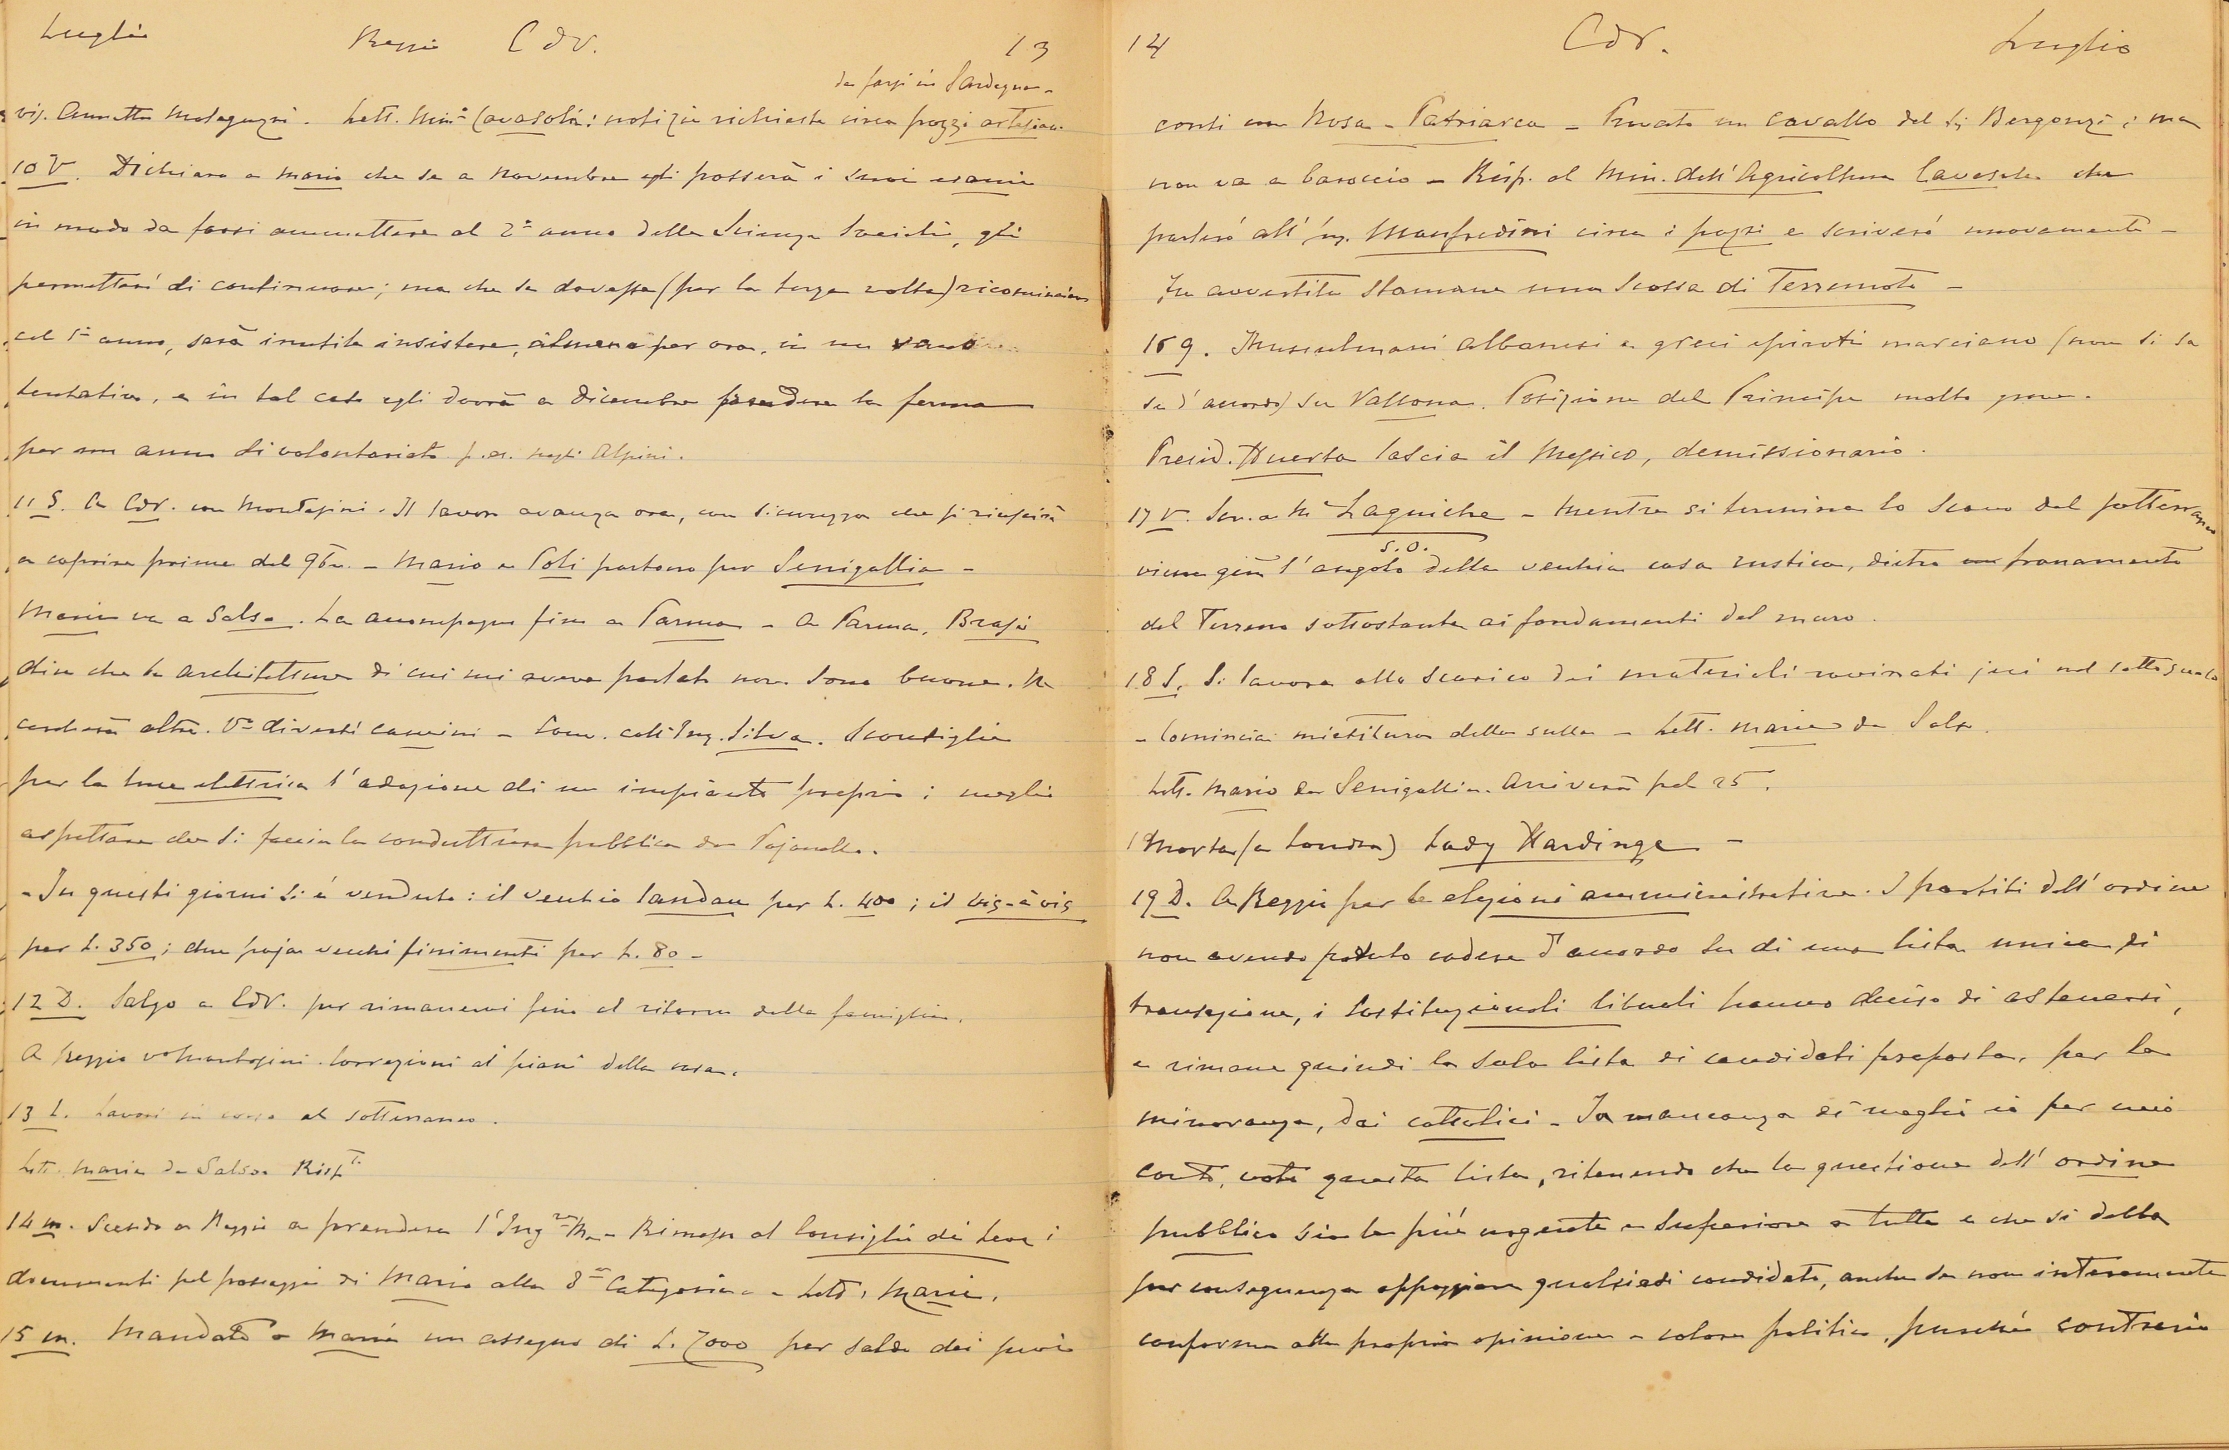 Luglio Reggio CdV. 13
da farsi in Sardegna -
vis. Annetta Malaguzzi. Lett. Min.º Cavasola: notizie richieste circa pozzi artesiani
10 V. Dichiaro a Mario che se a Novembre egli passerà i suoi esami
in modo da farsi ammettere al 2º anno delle Scienze Sociali, gli
permetterò di continuare; ma che se dovesse (per la terza volta) ricominciare
col 1º anno, sarà inutile insistere, almeno per ora, in un vano
tentativo, e in tal caso egli dovrà a Dicembre prendere la ferma
per un anno di volontariato p. es. negli Alpini.
11 S. A CdV. con Montasini. Il lavoro avanza ora, con sicurezza che si riuscirà
a coprire prima del 9bre. - Mario e Poli partono per Senigallia -
Maria va a Salso. La accompagno fino a Parma - A Parma, Brasi
dice che le architetture di cui mi aveva parlato non sono buone. Ne
cercherà altre. Vº diversi camini - Conv. coll'Ing. Silva. Sconsiglia
per la luce elettrica l'adozione di un impianto proprio; meglio
aspettare che si faccia la conduttura pubblica da Pojanella.
- In questi giorni si è venduto: il vecchio landau per L. 400; il vis-à-vis
per L. 350; due paja vecchi finimenti per L. 80 -
12 D. Salgo a CdV. per rimanervi fino al ritorno della famiglia.
A Reggio vº Montasini. Correzioni ai piani della casa.
13 L. Lavori in corso al sotterraneo.
Lett. Maria da Salso. Rispti.
14 m. Scendo a Reggio a prendere l'Ingre M. - Rimesso al Consiglio di Leva i
documenti pel passaggio di Mario alla 3ª Categoria - Lett. Maria.
15 m. Mandato a Maria un assegno di L. 7000 per saldo dei suoi
14 CdV. Luglio
conti con Rosa - Patriarca - Provato un cavallo del Sig. Bergonzi; ma
non va a baroccio - Risp. al Min. dell'Agricoltura Cavasola che
parlerò all'ing. Manfredini circa i pozzi e scriverò nuovamente -
Fu avvertita stamane una scossa di Terremoto -
16 g. Musulmani albanesi e greci epiroti marciano (non si sa
se d'accordo) su Vallona. Posizione del Principe molto grave.
Presid. Huerta lascia il Messico, demissionario.
17 V. Scr. a Mr Laguiche - Mentre si termina lo scavo del sotterraneo
viene giù l'angolo S.O. della vecchia casa rustica, dietro franamento
del Terreno sottostante ai fondamenti del muro.
18 S. Si lavora allo scarico dei materiali rovinati jeri nel sottosuolo
- Comincia mietitura della sulla - Lett. Maria da Salso.
Lett. Mario da Senigallia. Arriverà pel 25.
Morta (a Londra) Lady Hardinge -
19 D. A Reggio per le elezioni amministrative. I partiti dell'ordine
non avendo potuto cadere d'accordo su di una lista unica di
transazione, i Costituzionali liberali hanno deciso di astenersi,
e rimane quindi la sola lista di candidati proposta, per la
minoranza, dai cattolici - In mancanza di meglio io per mio
conto, voto questa lista, ritenendo che la questione dell'ordine
pubblico sia la più urgente e superiore a tutte e che si debba
per conseguenza appoggiare qualsiasi candidato, anche se non interamente
conforme alla propria opinione o colore politico, purché contrario